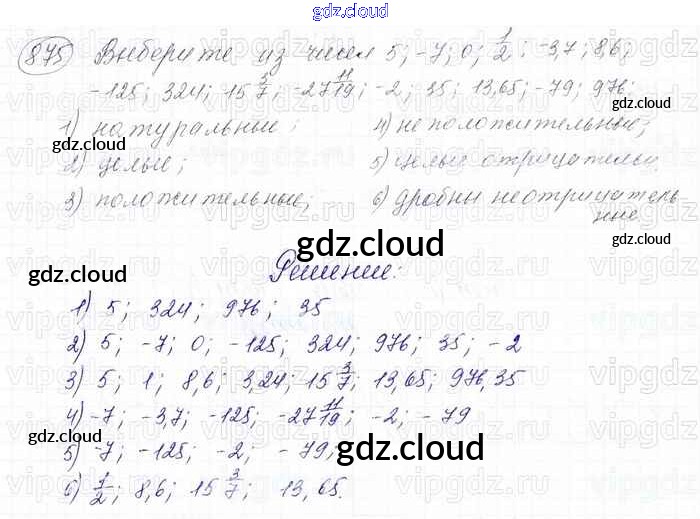 gdz.cloud
875 Выберите из чисел 5; -7; 0; 1/2; -3,7; 8,6;
-125; 324; 15 3/7; -27 11/19; -2; 35; 13,65; -79; 976;
gdz.cloud
1) натуральные; 4) неположительные;
2) целые; 5) целые отрицательн.
gdz.cloud
3) положительные; 6) дробны неотрицатель-
нные
gdz.cloud
gdz.cloud
Решение:
gdz.cloud
1) 5; 324; 976; 35
2) 5; -7; 0; -125; 324; 976; 35; -2
3) 5; 1; 8,6; 3,24; 15 3/7; 13,65; 976,35
4) -7; -3,7; -125; -27 11/19; -2; -79
gdz.cloud
5) -7; -125; -2; -79;
gdz.cloud
gdz.cloud
6) 1/2; 8,6; 15 3/7; 13,65.